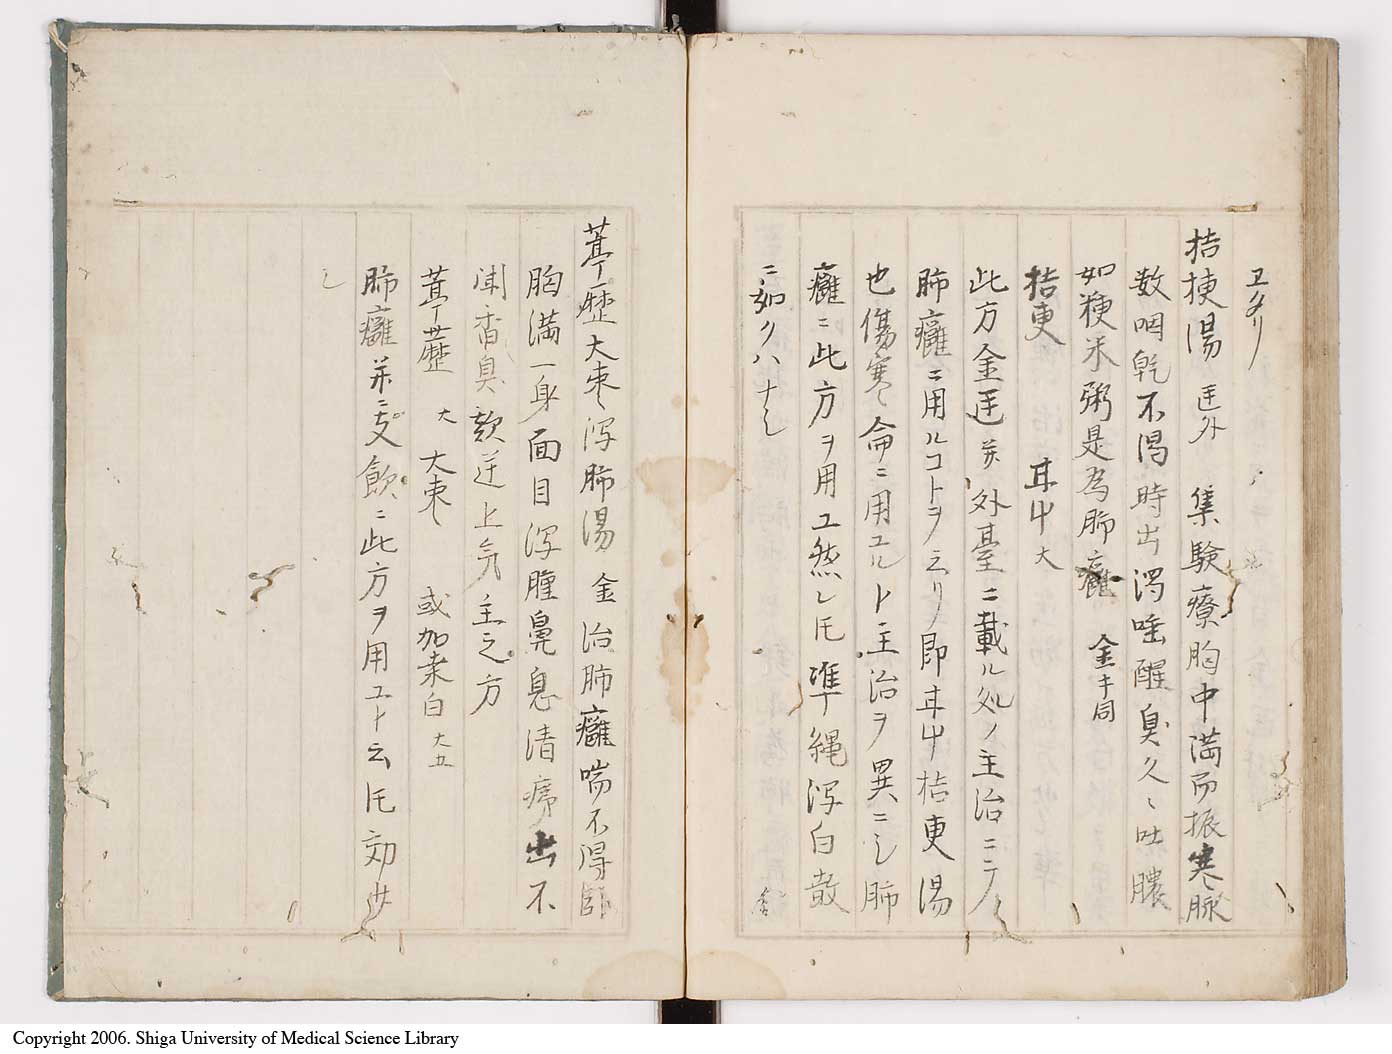 ヱタリ
桔梗湯 匡外 集験療胸中満而振寒脉
数咽乾不渇時出濁唾腥臭久〻吐膿
如粳米粥是為肺癰 金千同
桔更 甘艸 大
此方金匡并外臺ニ載ル処ノ主治ニテ
肺癰ニ用ルコトヲ云リ即甘艸桔更湯
也傷寒侖ニ用ユルト主治ヲ異ニシ肺
癰ニ此方ヲ用ユ然レ𪜈準縄瀉白散
ニ如クハナシ
葶歴大枣瀉肺湯 金治肺癰喘不得卧
胸満一身面目浮腫鼻息清涕出不
聞香臭欬逆上気主之方
葶藶 大 大枣 或加桒白 大五
肺癰并ニ支飲ニ此方ヲ用ユト云𪜈効少
シ
Copyright 2006. Shiga University of Medical Science Library